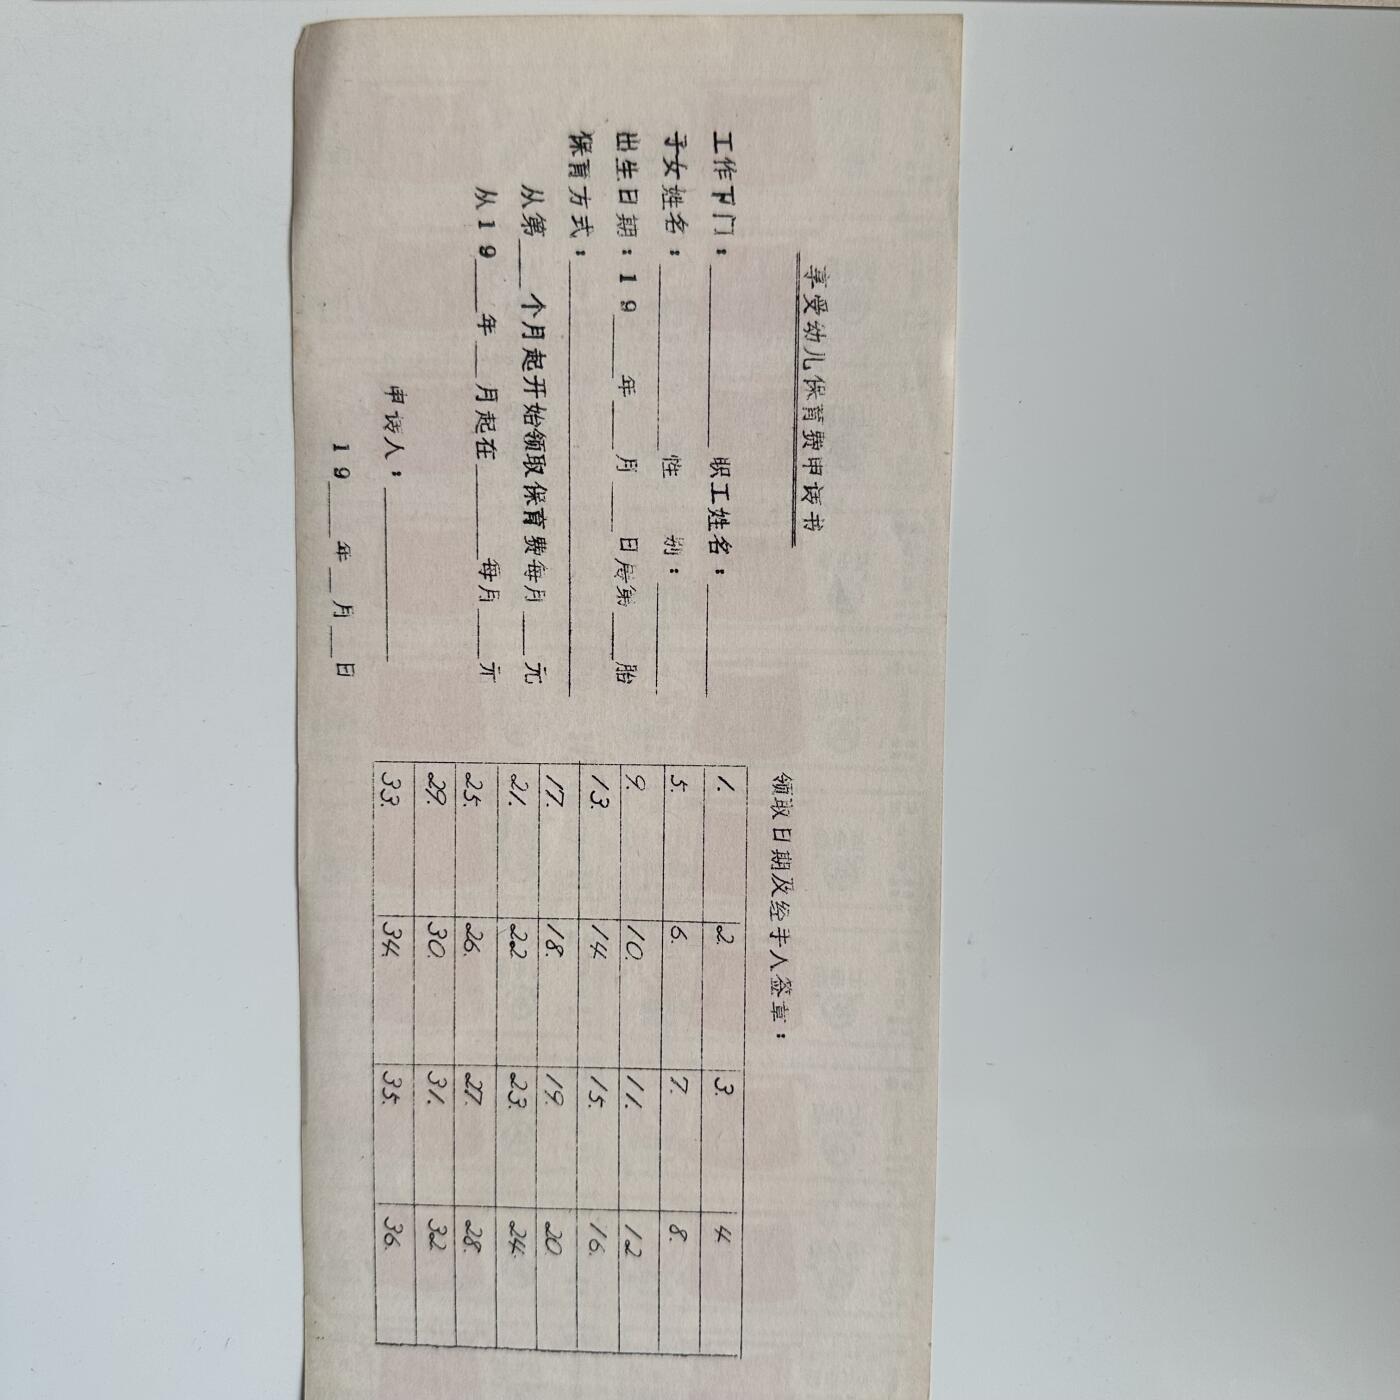 享受幼儿保育费申请书
工作部门：________ 职工姓名：________
子女姓名：________ 性 别：________
出生日期：19___年___月___日属第___胎
保育方式：________________
从第___个月起开始领取保育费每月___元
从19___年___月起在______每月___元
申请人：________
19___年___月___日
领取日期及经手人签章：
1. 2. 3. 4.
5. 6. 7. 8.
9. 10. 11. 12
13. 14. 15. 16.
17. 18. 19. 20
21. 22 23. 24.
25. 26. 27. 28.
29. 30. 31. 32
33. 34. 35. 36.